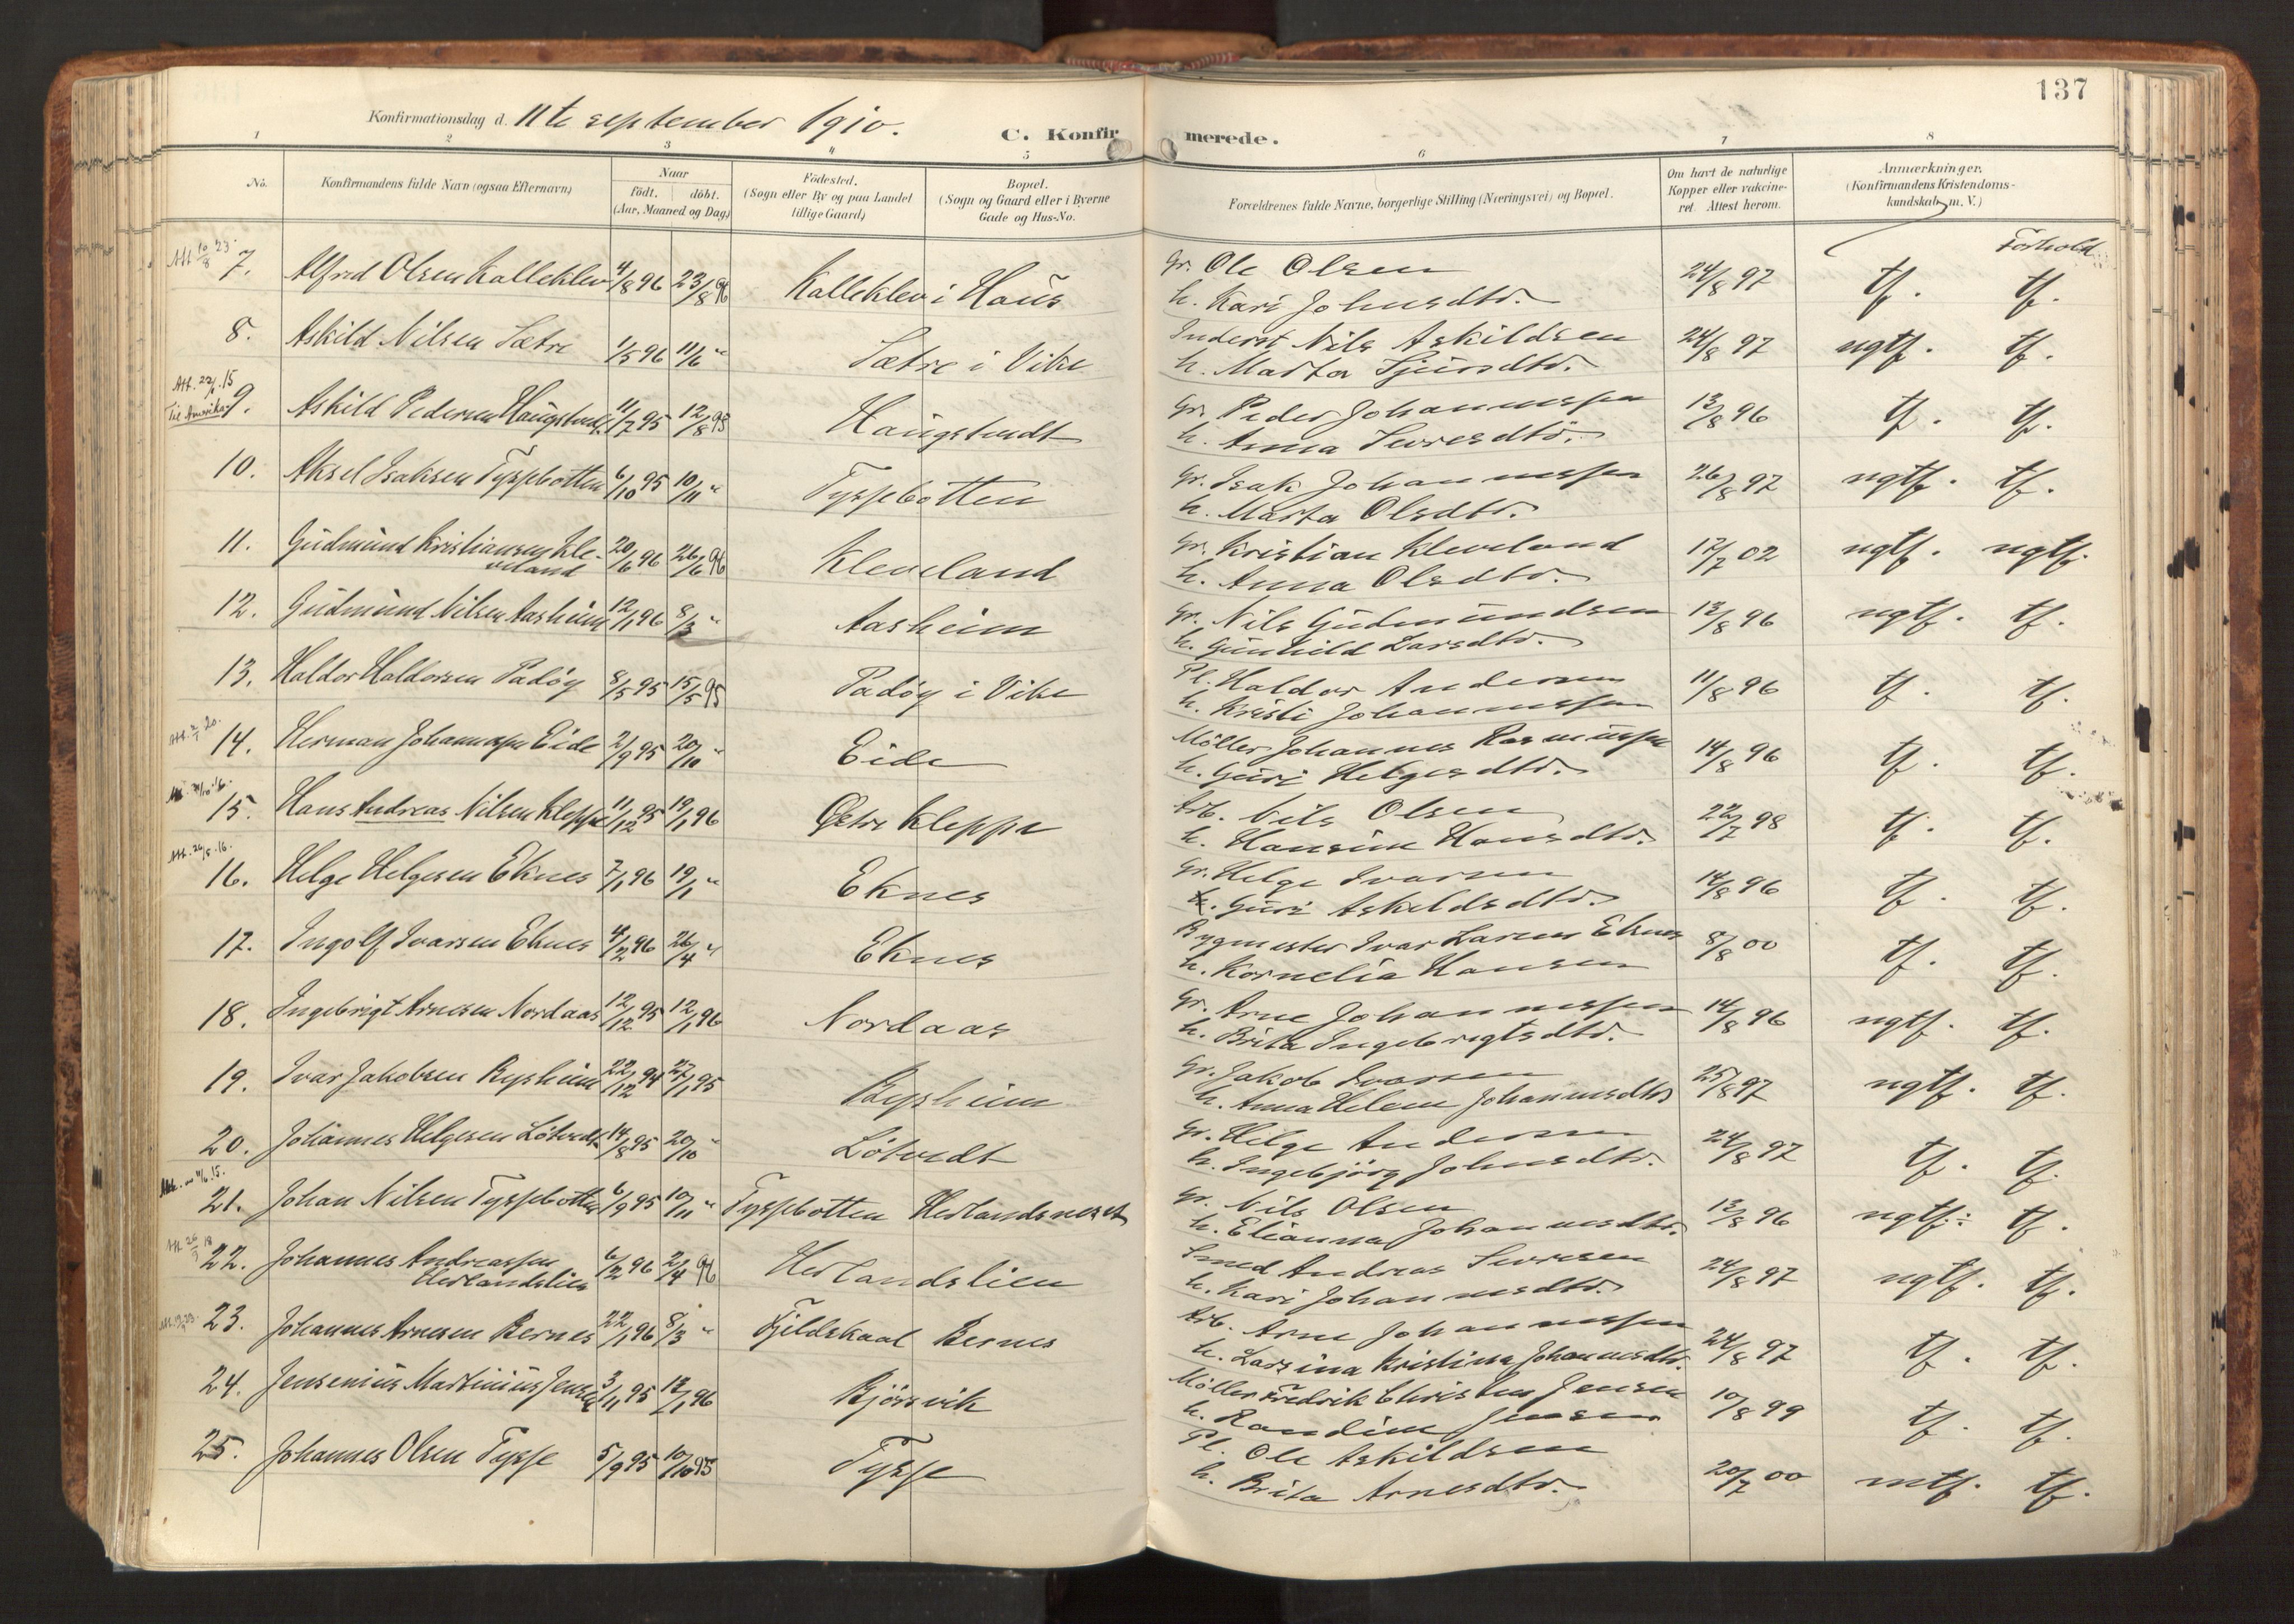 137
Konfirmationsdag d. 11te september 1910.
C. Konfirmerede.
1 2 3 4 5 6 7 8
No.
Konfirmandens fulde Navn (ogsaa Efternavn)
Naar
födt. döbt.
(Aar, Maaned og Dag)
Födested.
(Sogn eller By og paa Landet
tillige Gaard)
Bopæl.
(Sogn og Gaard eller i Byerne
Gade og Hus-No.
Forældrenes fulde Navne, borgerlige Stilling (Næringsvei) og Bopæl.
Om havt de naturlige
Kopper eller vakcine-
ret. Attest herom.
Anmærkninger.
(Konfirmandens Kristendoms-
kundskab m. V.)
Forhold
7. Alfred Olsen Kalleklev 4/8 96 23/8 96 Kalleklev i Haus Gr. Ole Olsen 24/8 97 tf. tf.
h. Kari Johnsdtr.
8. Askild Nilsen Sætre 1/5 96 11/6 " Sætre i Vike Inderst Nils Askildsen 24/8 97 ngtf. tf.
h. Marta Sjursdtr.
Att. 22/1 15
Til Amerika
9. Askild Pedersen Haugstvedt 11/7 95 12/8 95 Haugstvedt Gr. Peder Johannessen 13/8 96 tf. tf.
h. Anna Sjursdtr.
10. Aksel Isaksen Tyssebotten 6/10 95 10/11 " Tyssebotten Gr. Isak Johannessen 26/8 97 ngtf. tf.
h. Marta Olsdtr.
11. Gudmund Kristiansen Kle-
veland 20/6 96 26/6 96 Kleveland Gr. Kristian Kleveland 17/7 02 ngtf. ngtf.
h. Anna Olsdtr.
12. Gudmund Nilsen Aasheim 12/1 96 8/3 " Aasheim Gr. Nils Gudmundsen 13/8 96 ngtf. tf.
h. Gunhild Larsdtr.
13. Haldor Haldorsen Padöy 8/5 95 15/5 95 Padöy i Vike Pl. Haldor Andersen 11/8 96 tf. tf.
h. Kristi Johannessen
14. Herman Johannessen Eide 2/9 95 20/10 " Eide Möller Johannes Rasmussen 14/8 96 tf. tf.
h. Guri Helgesdtr.
15. Hans Andreas Nilsen Kleppe 11/12 95 19/1 96 Östre Kleppe Arb. Nils Olsen 22/7 98 tf. tf.
h. Hansine Hansdtr.
Att. 26/8 16.
16. Helge Helgesen Eknes 7/1 96 19/1 " Eknes Gr. Helge Ivarsen 14/8 96 tf. tf.
h. Guri Askildsdtr.
17. Ingolf Ivarsen Eknes 4/2 96 26/4 " Eknes Bygmester Ivar Larsen Eknes 8/8 00 tf. tf.
h. Kornelia Hansen
18. Ingebrigt Arnesen Nordaas 12/12 95 12/1 96 Nordaas Gr. Arne Johannessen 14/8 96 ngtf. tf.
h. Brita Ingebrigtsdtr.
19. Ivar Jakobsen Rysheim 22/12 94 27/1 95 Rysheim Gr. Jakob Ivarsen 25/8 97 ngtf. tf.
h. Anna Helene Johannesdtr
20. Johannes Helgesen Lötvedt 14/8 95 20/10 " Lötvedt Gr. Helge Andersen 24/8 97 tf. tf.
h. Ingebjörg Johnsdtr.
21. Johan Nilsen Tyssebotten 6/9 95 10/11 " Tyssebotten Herlandsneset Gr. Nils Olsen 13/8 96 ngtf.÷ tf.
h. Elianna Johannesdtr.
22. Johannes Andreassen
Herlandslien 6/2 96 2/4 96 Herlandslien Smed Andreas Sjursen 24/8 97 ngtf. tf.
h. Kari Johannesdtr.
23. Johannes Arnesen Bernes 22/1 96 8/3 " Fjeldskaal Bernes Arb. Arne Johannessen 24/8 97 tf. tf.
h. Larsina Kristina Johannesdtr.
24. Jensenius Martinius Jensen 3/11 95 12/1 96 Bjørsvik Möller Fredrik Christian Jensen 10/8 99 tf. tf.
h. Randine Jensen
25. Johannes Olsen Tysse 5/9 95 10/10 95 Tysse Pl. Ole Askildsen 20/7 00 mtf. tf.
h. Brita Arnesdtr.